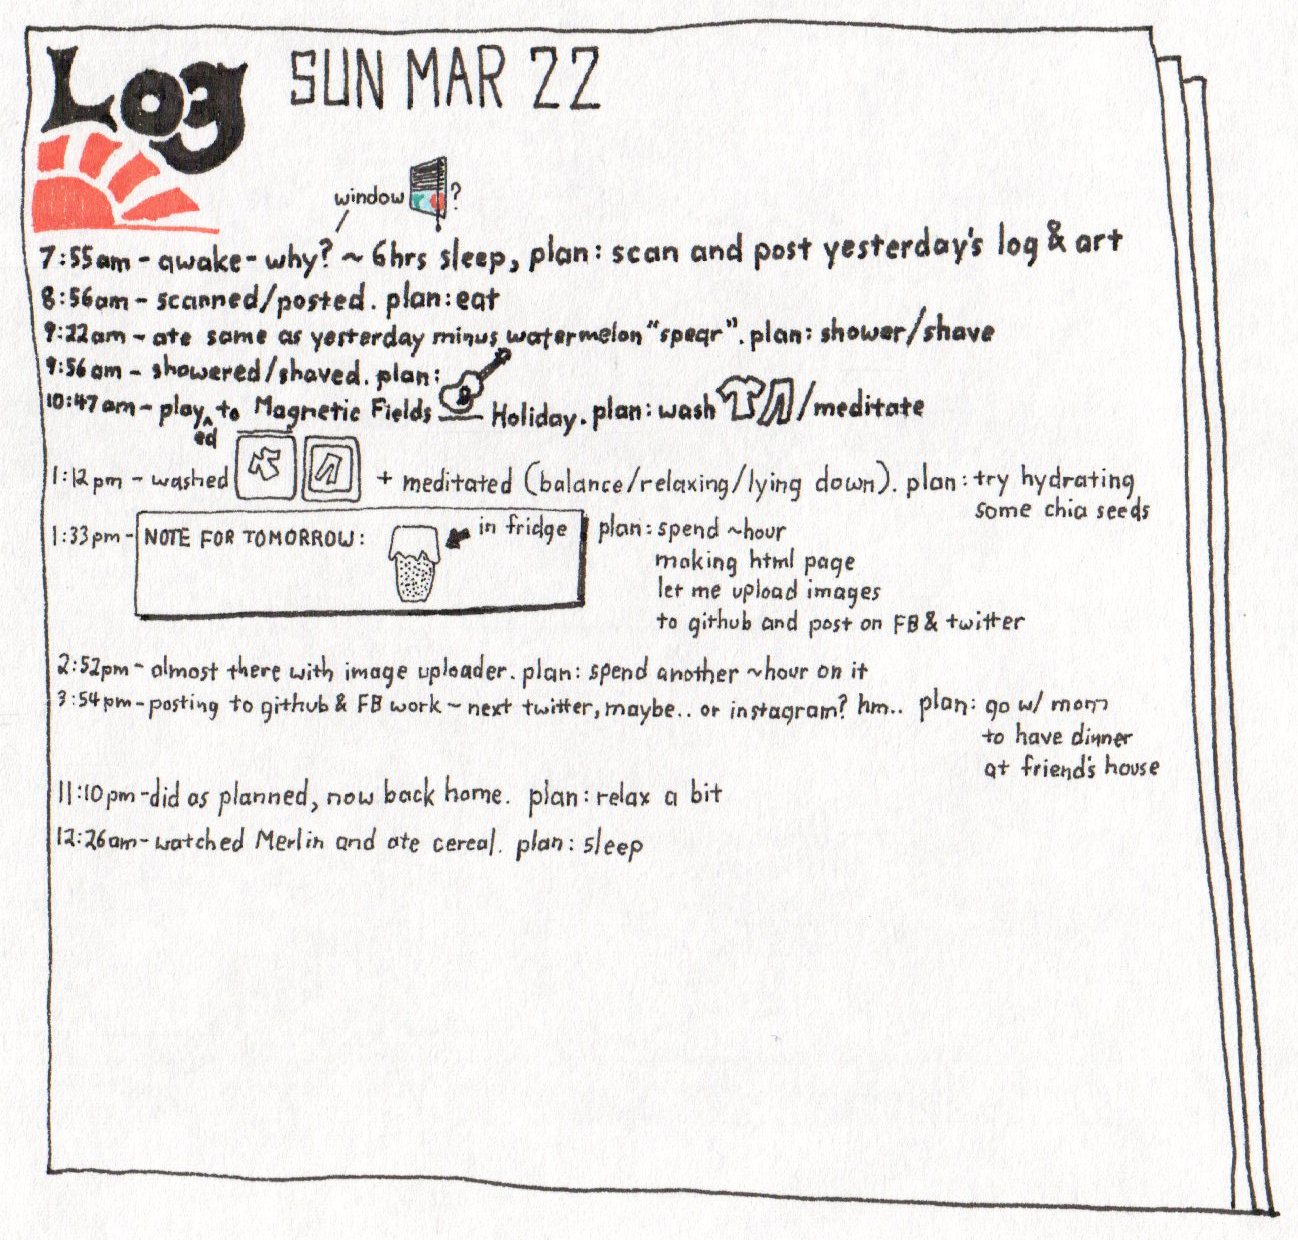 Log SUN MAR 22
window ?
7:55am - awake - why? ~ 6hrs sleep, plan: scan and post yesterday's log & art
8:56am - scanned/posted. plan: eat
9:22am - ate same as yesterday minus watermelon "spear". plan: shower/shave
9:56am - showered/shaved. plan:
10:47am - play^ed to Magnetic Fields Holiday. plan: wash /meditate
1:12pm - washed + meditated (balance/relaxing/lying down). plan: try hydrating
some chia seeds
1:33pm - NOTE FOR TOMORROW: in fridge plan: spend ~hour
making html page
let me upload images
to github and post on FB & twitter
2:52pm - almost there with image uploader. plan: spend another ~hour on it
3:54pm - posting to github & FB work - next twitter, maybe.. or instagram? hm.. plan: go w/ mom
to have dinner
at friend's house
11:10pm - did as planned, now back home. plan: relax a bit
12:26am - watched Merlin and ate cereal. plan: sleep